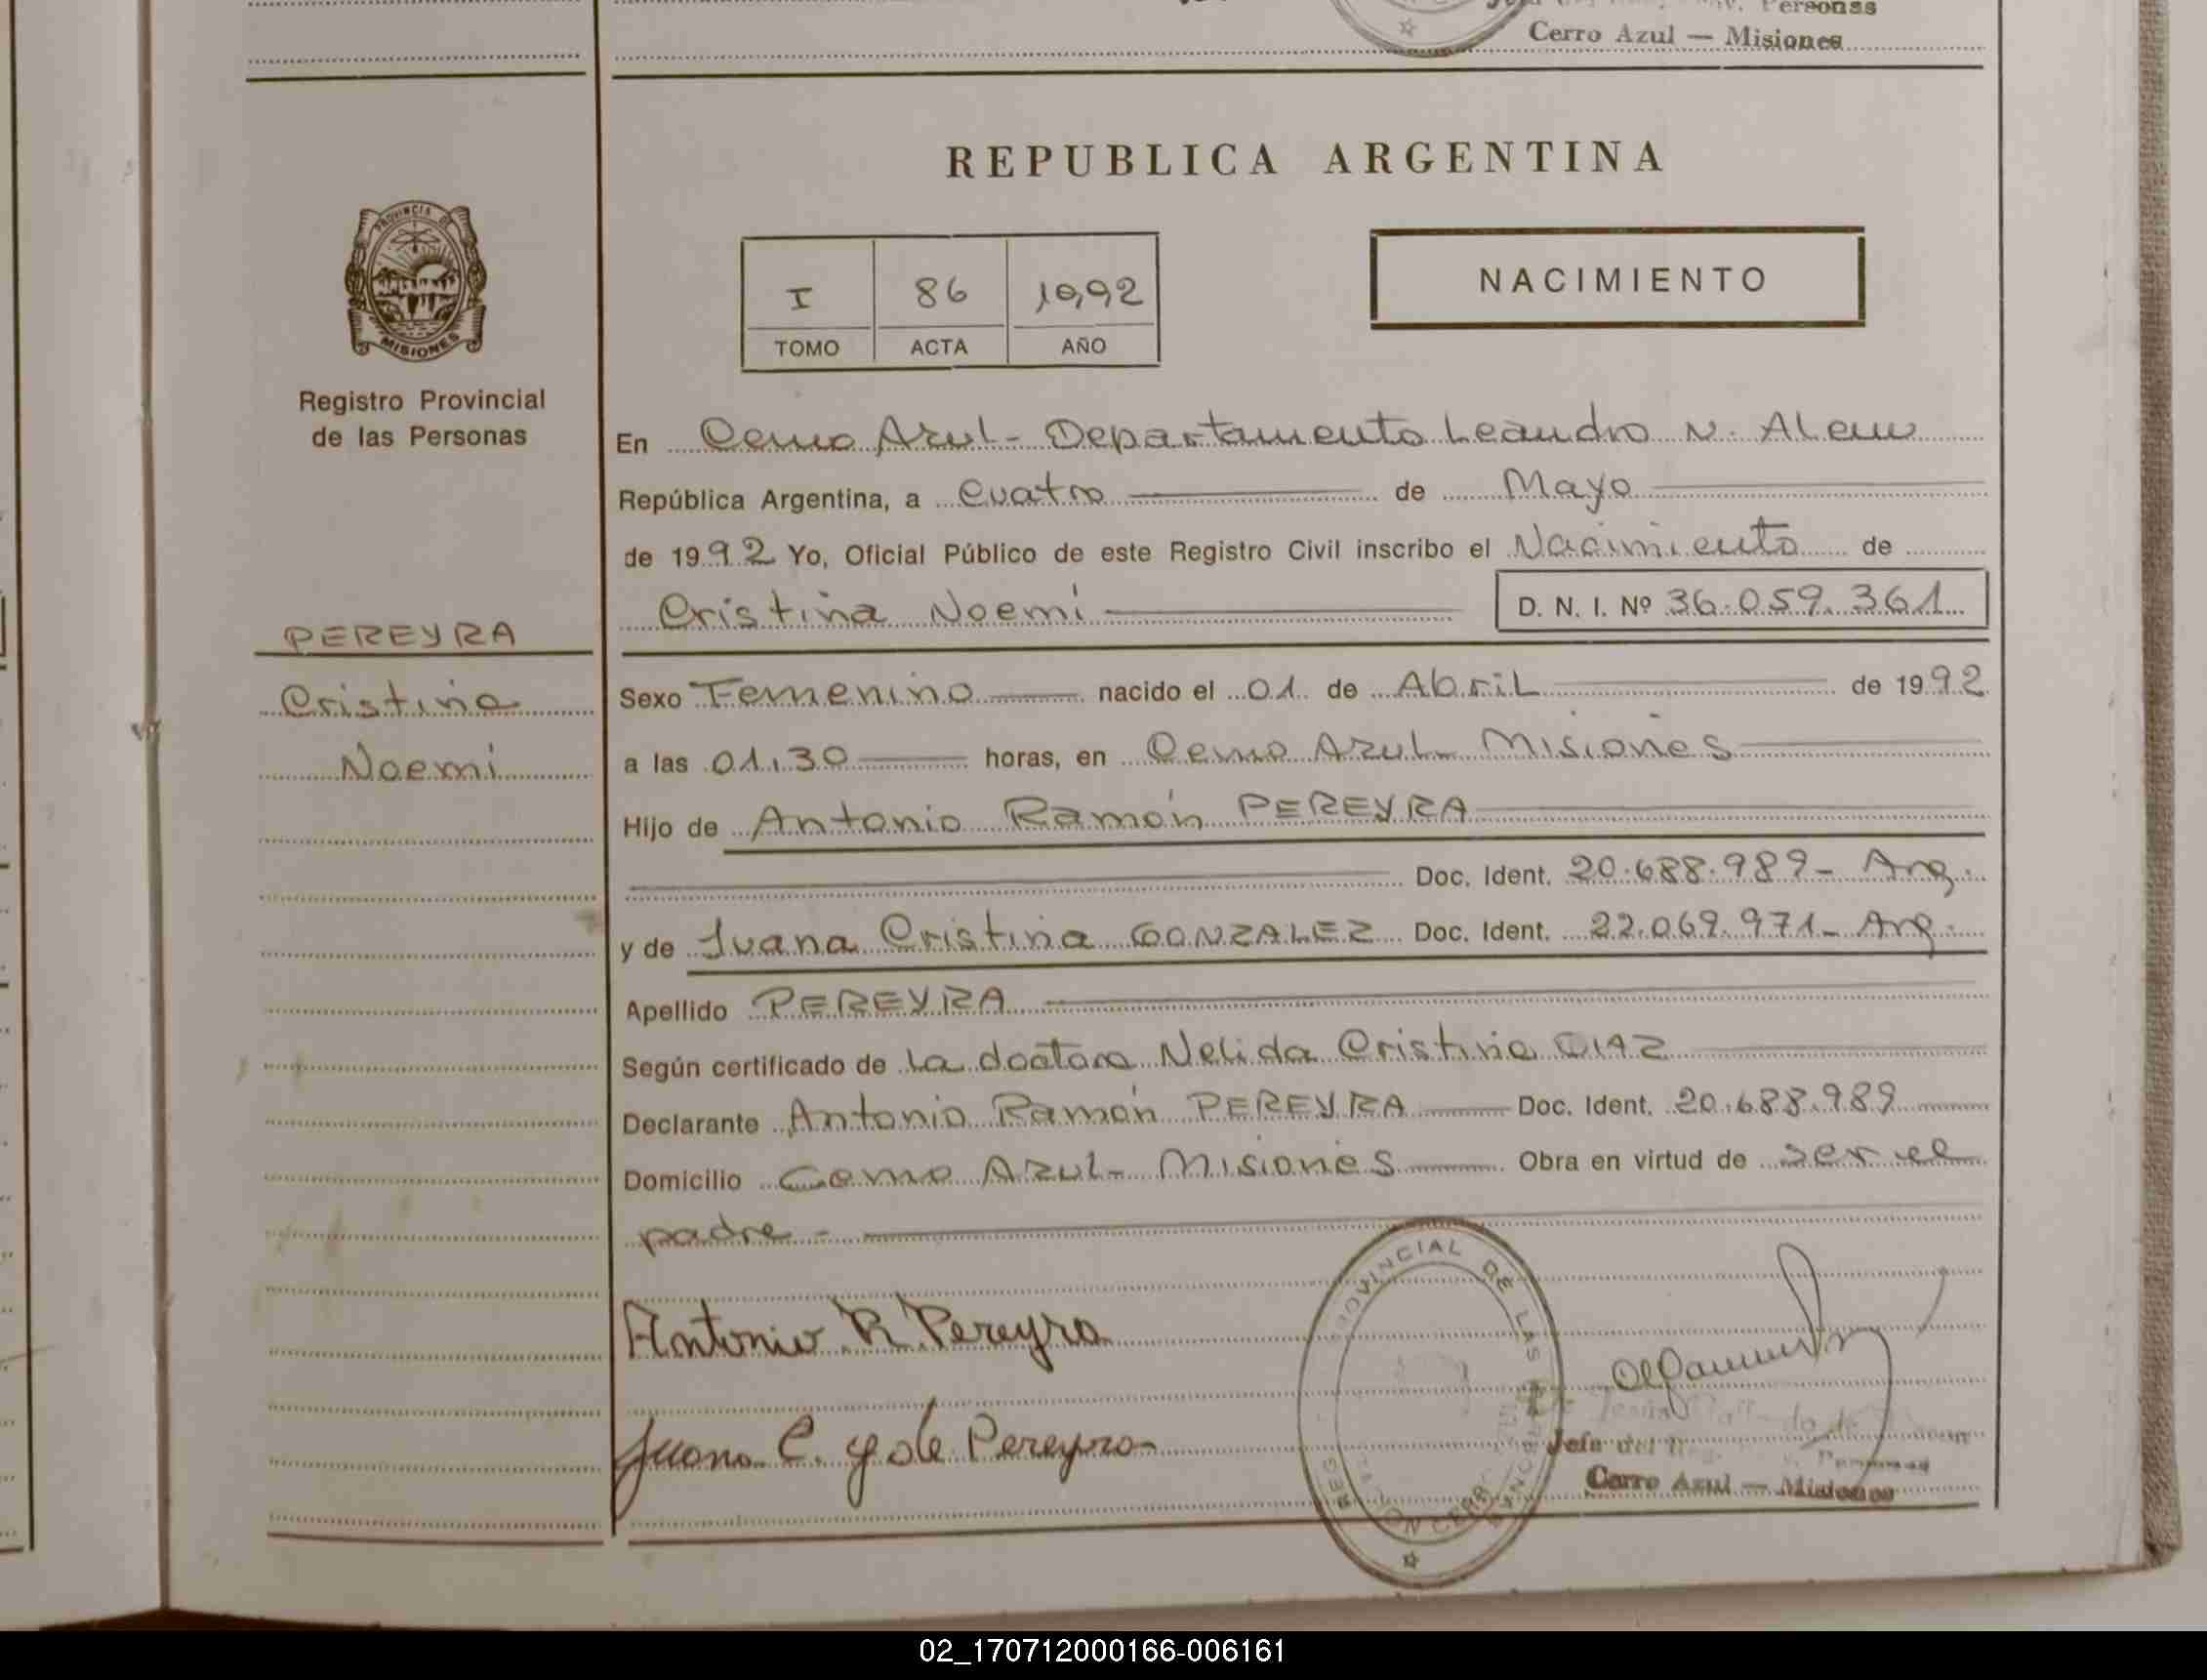 Cerro Azul — Misiones
REPUBLICA ARGENTINA
PROVINCIA DE
MISIONES
Registro Provincial
de las Personas
I 86 1992
TOMO ACTA AÑO
NACIMIENTO
PEREYRA
Cristina
Noemi
En Cerro Azul - Departamento Leandro N. Alem
República Argentina, a Cuatro de Mayo
de 1992 Yo, Oficial Público de este Registro Civil inscribo el Nacimiento de
Cristina Noemí D. N. I. Nº 36.059.361
Sexo Femenino nacido el 01 de Abril de 1992
a las 01,30 horas, en Cerro Azul - Misiones
Hijo de Antonio Ramón PEREYRA
Doc. Ident. 20.688.989 - Arg.
y de Juana Cristina GONZALEZ Doc. Ident. 22.069.971 - Arg.
Apellido PEREYRA
Según certificado de la doctora Nelida Cristina DIAZ
Declarante Antonio Ramón PEREYRA Doc. Ident. 20.688.989
Domicilio Cerro Azul - Misiones Obra en virtud de ser el
padre -
Antonio R. Pereyra
Juana C. g de Pereyra
PROVINCIAL DE LAS PERSONAS
Cerro Azul — Misiones
02_170712000166-006161